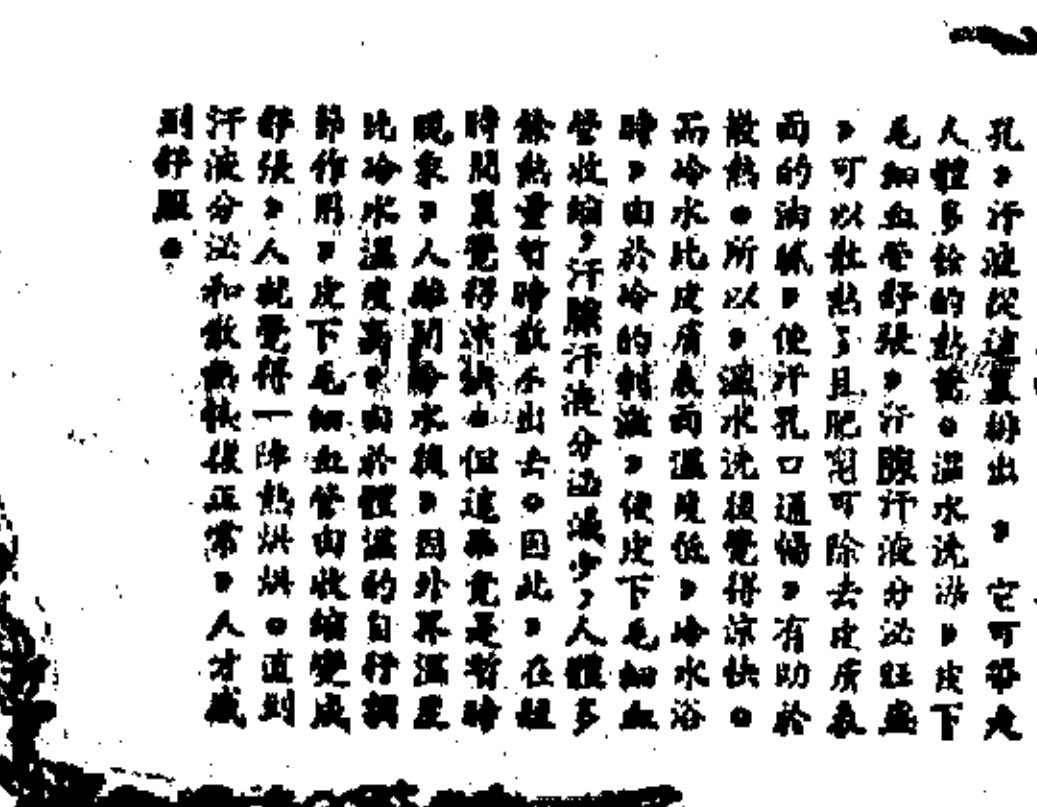 孔，汗液從這裏排出，它可帶走
人體多餘的熱量。溫水洗澡，皮下
毛細血管舒張，汗腺汗液分泌旺盛
，可以散熱，且肥皂可除去皮膚表
面的油膩，使汗孔口通暢，有助於
散熱。所以，溫水洗後覺得涼快。
而冷水比皮膚表面溫度低，冷水浴
時，由於冷的刺激，使皮下毛細血
管收縮，汗腺汗液分泌減少，人體多
餘熱量暫時散不出去。因此，在短
時間裏覺得涼快。但這畢竟是暫時
現象，人離開冷水後，因外界溫度
比冷水溫度高，由於體溫的自行調
節作用，皮下毛細血管由收縮變成
舒張，人就覺得一陣熱烘烘。直到
汗液分泌和散熱恢復正常，人才感
到舒服。